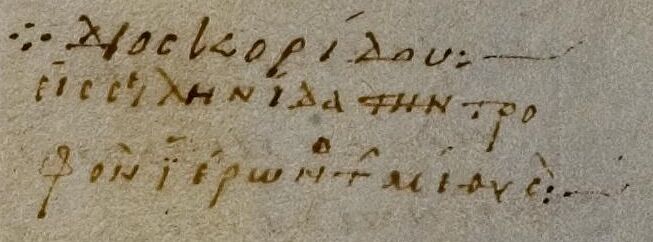 Διοσκορίδου:—
εἰς σιληνίδα τὴν τρο
φὸν ϊέρων τ μεθυσ:—